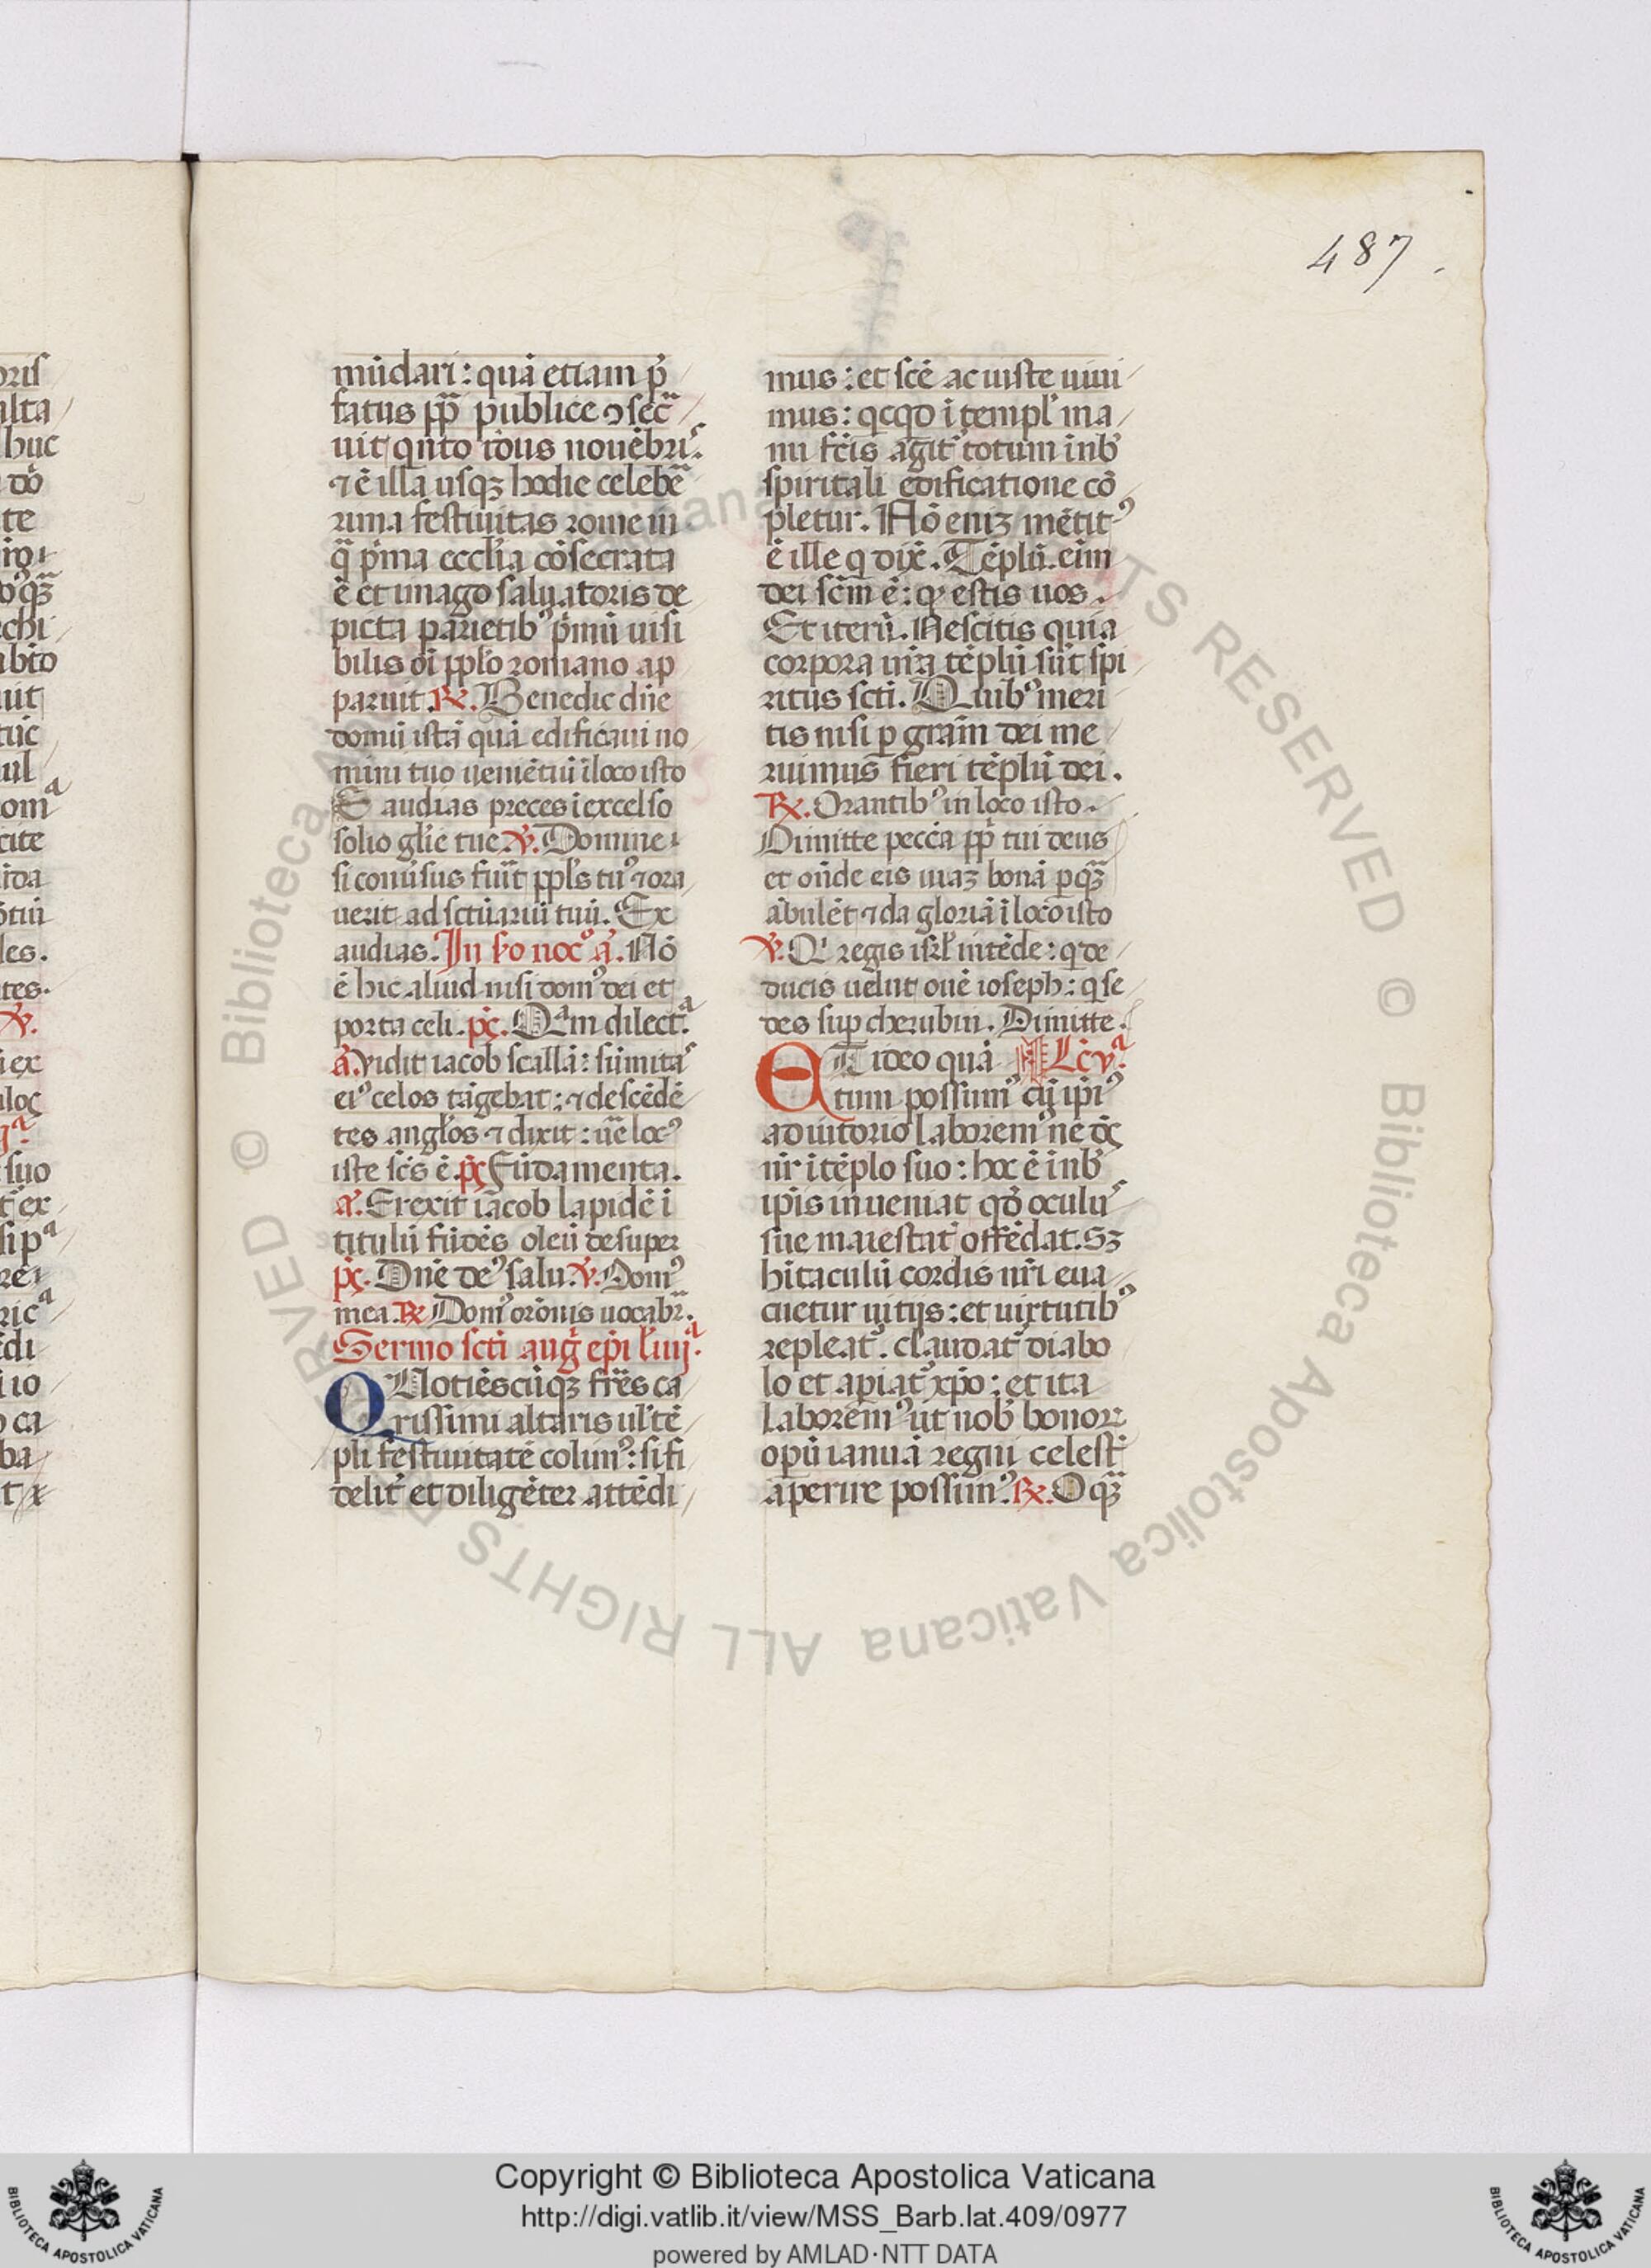 487
mūdari: quā etiam p̄
fatus pp̄ publice ꝯsec̄
uit qnto id̓us nouēbrı᷒.
⁊ ē illa usqꝫ hodie celebē
rima festiuitas rome in
q̄ p̓ma eccl̓ia cōsecrata
ē et imago saluatoris de
picta parietibꝰ p̓mū uisi
bilis oı̄ ppl̓o romano ap
paruit. ℟. Benedic dn̄e
domū istā quā edificaui no
mini tuo ueniētiū ī loco isto
E audias preces ī excelso
solio gl̓ie tue ℣. Domine
si conu̓sus fuı̄t ppl̓s tuꝰ ⁊ ora
uerit ad sctūariū tuū. Ex
audias. In ẜo nocͦ a̓. Nō
ē hic aliud nisi domꝰ dei et
porta celi. pꝭ. Qᵃm dilectᵃ.
a̓. Vidit iacob scallā: sūmita᷒
eiꝰ celos tāgebat: ⁊ descēdē
tes angl̓os ⁊ dixit: ūe locꝰ
iste sc̄s ē. pꝭ Fūdamenta.
a̓. Erexit iacob lapidē ī
titulū fūdēs oleū desuper
pꝭ. Dn̄e deꝰ salu. ℣. Domꝰ
mea. ℟ Domꝰ orōnis uocabr̄.
Sermo scti aug̓ ep̄i l̓iiijᵃ.
QUotiēscūqꝫ frēs ca
rissimi altaris ul̓ tē
pli festiuitatē colimꝰ: si fi
delit̓ et diligēter attēdi
mus: et scē ac iuste uiui
mus: qcqd ī templ̓ ma
nu fc̄is agit̓ totum in b̓
spiritali edificatione cō
pletur. Nō enīꝫ mētitꝰ
ē ille q dix̄. Tēplū. eı̄m
dei scm̄ ē: qꝫ estis uos.
Et iterū. Nescitis quia
corpora ur̄a tēplū sūt spi
ritus scti. Quibꝰ meri
tis nisi ꝑ gram̄ dei me
ruimus fieri tēplū dei.
℟. Orantibꝰ in loco isto.
Dimitte pecc̄a pp̓ tui deus
et on̄de eis uiaꝫ bonā ꝑ qꝫ̄
ābulēt ⁊ da gloriā ī loco isto
℣. Q̓ regis isrl̓ intēde: q de
ducis uelut ouē ioseph: q se
des sup̱ cherubin. Dimitte.
ET ideo quā Lc̄vᵃ.
tum possimꝰ cū ipı̄ꝰ
adiutorio laboremꝰ ne dꝭ
nr̄ ī tēplo suo: hoc ē ī nb̓
ipı̄s inueniat qd̓ oculu᷒
sue maiestat̓ offēdat. Sꝫ
hı̄taculū cordis nr̄i eua
cuetur uitijs: et uirtutibꝰ
repleat̓. claudat̓ diabo
lo et apiat̓ xp̄o: et ita
laboremꝰ ut nob̓ bonoꝝ
opū ianuā regni celest̓
aperire possimꝰ. ℟. O qꝫ̄
Copyright © Biblioteca Apostolica Vaticana
http://digi.vatlib.it/view/MSS_Barb.lat.409/0977
powered by AMLAD·NTT DATA